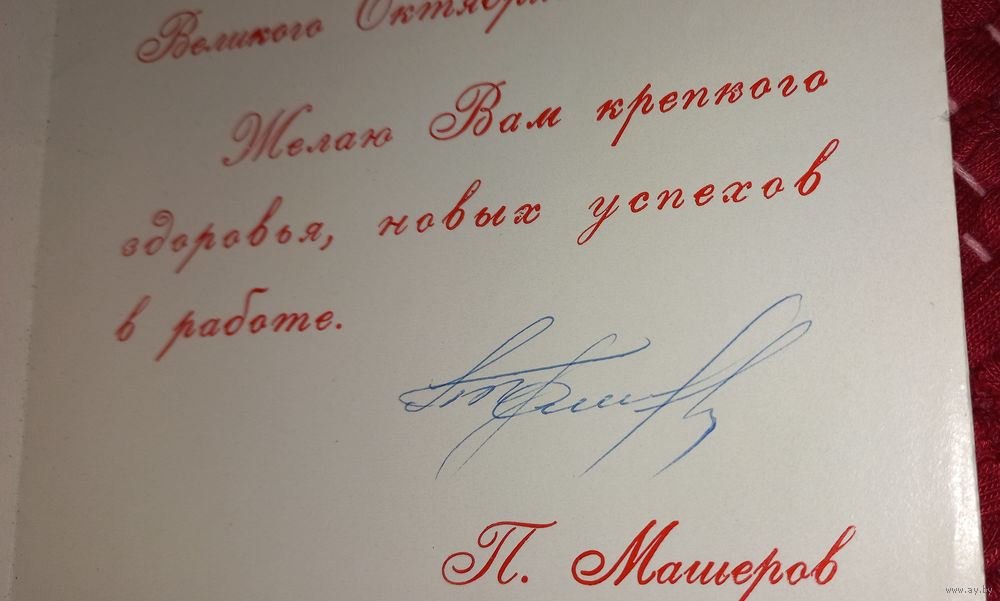 Великого Октября
Желаю Вам крепкого
здоровья, новых успехов
в работе.
П. Машеров
www.ay.by